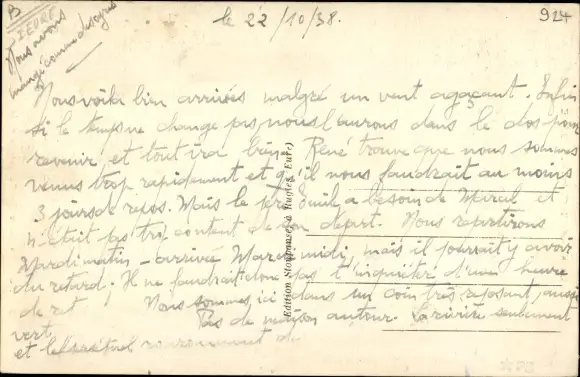 B
IEURE
Nous avons
mangé comme des ogres
le 22/10/38.
924
Nous voilà bien arrivés malgré un vent agaçant. Enfin
si le temps ne change pas, nous l'aurons dans le dos pour
revenir et tout ira bien. René trouve que nous sommes
venus trop rapidement et qu'il nous faudrait au moins
3 jours de repos. Mais le père a besoin de et
n'était pas trop content de son départ. Nous repartirons
Mardi matin - arrivée midi, mais il pourrait y avoir
du retard. Il ne faudrait donc pas t'inquiéter d'une heure
de ret Nous sommes ici dans un coin très reposant, aussi
Pas de maison autour. La rivière seulement
vert
et de
Edition Stopponse, à Rugles (Eure)